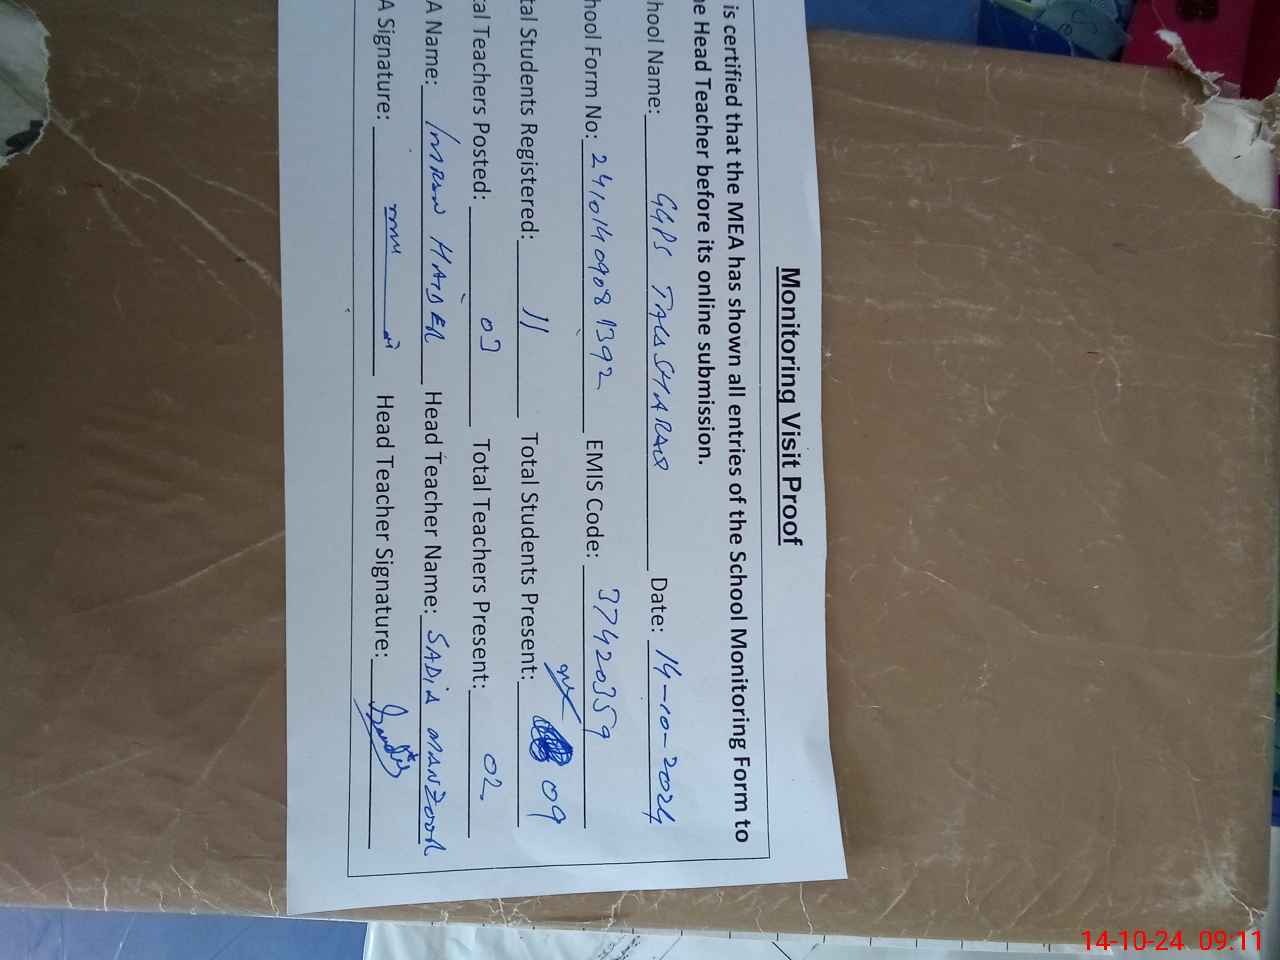 Monitoring Visit Proof
is certified that the MEA has shown all entries of the School Monitoring Form to
he Head Teacher before its online submission.
hool Name: GGPS Date: 14-10-2024
hool Form No: 24101409081392 EMIS Code: 37420359
tal Students Registered: 11 Total Students Present: 09
tal Teachers Posted: 03 Total Teachers Present: 02
A Name: IMRAN HAIDER Head Teacher Name: SADiA MANZOOR
A Signature: Head Teacher Signature:
14-10-24 09:11